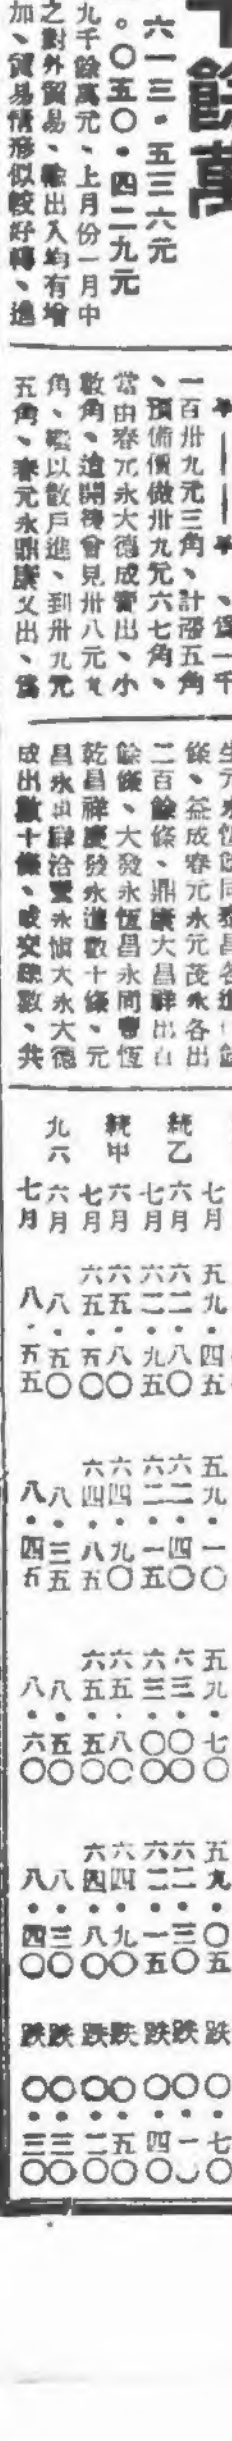 十餘萬
六一三・五三六元
。〇五〇・四二九元
九千餘萬元、上月份一月中
之對外貿易、輸出入均有增
加、貿易情形似較好轉、進
、為一千
一百卅九元三角、計漲五角
、預備價做卅九元六七角、
當由春元永大德成賣出、小
數角、這開後會見卅八元九
角、繼以散戶進、到卅九元
五角、春元永鼎康又出、為
生元永恆餘同泰昌各進
條、益成春元永元茂永各出
二百餘條、鼎康大昌祥出百
餘條、大發永恆昌永同豐恆
乾昌祥慶發永進數十條、元
昌永申祥洽豐永愼大永大德
成出數十條、成交總數、共
七月 五九・四五 五九・一〇 五九・七〇 五九・〇五 跌〇・七〇
統乙 六月 六二・八〇 六二・四〇 六三・〇〇 六二・三〇 跌〇・一
七月 六二・九五 六二・一五 六三・〇〇 六二・一五 跌〇・四〇
統甲 六月 六五・八〇 六四・九〇 六五・八〇 六四・九〇 跌〇・五〇
七月 六五・五〇 六四・八五 六五・五〇 六四・八〇 跌〇・二〇
九六 六月 八・五〇 八・三五 八・五〇 八・三〇 跌〇・三〇
七月 八・五五 八・四五 八・六〇 八・四〇 跌〇・三〇